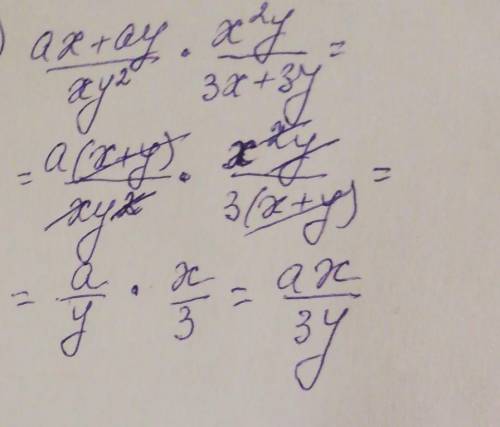 ) (ax+ay)/(xy²) · (x²y)/(3x+3y) =
= (a(x+y))/(xy²) · (x²y)/(3(x+y)) =
= a/y · x/3 = (ax)/(3y)